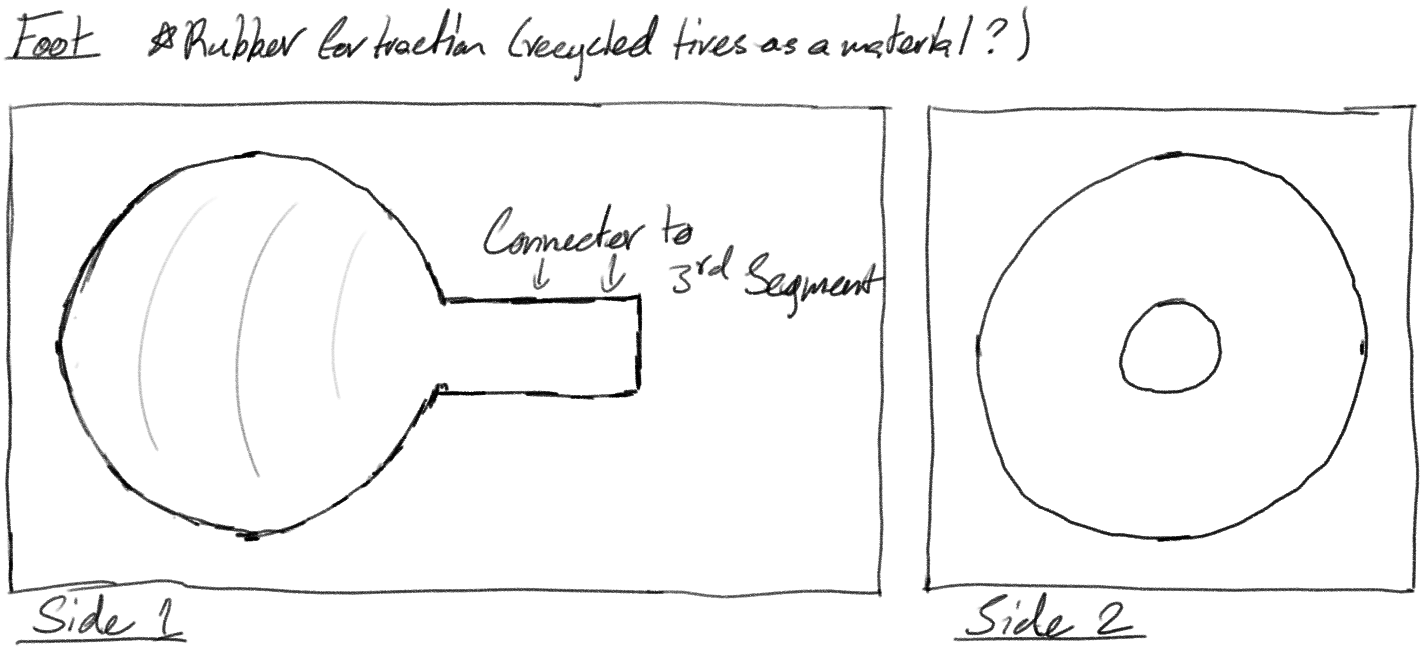 Foot *Rubber for traction (recycled tires as a material?)
Connector to
3rd Segment
Side 1
Side 2